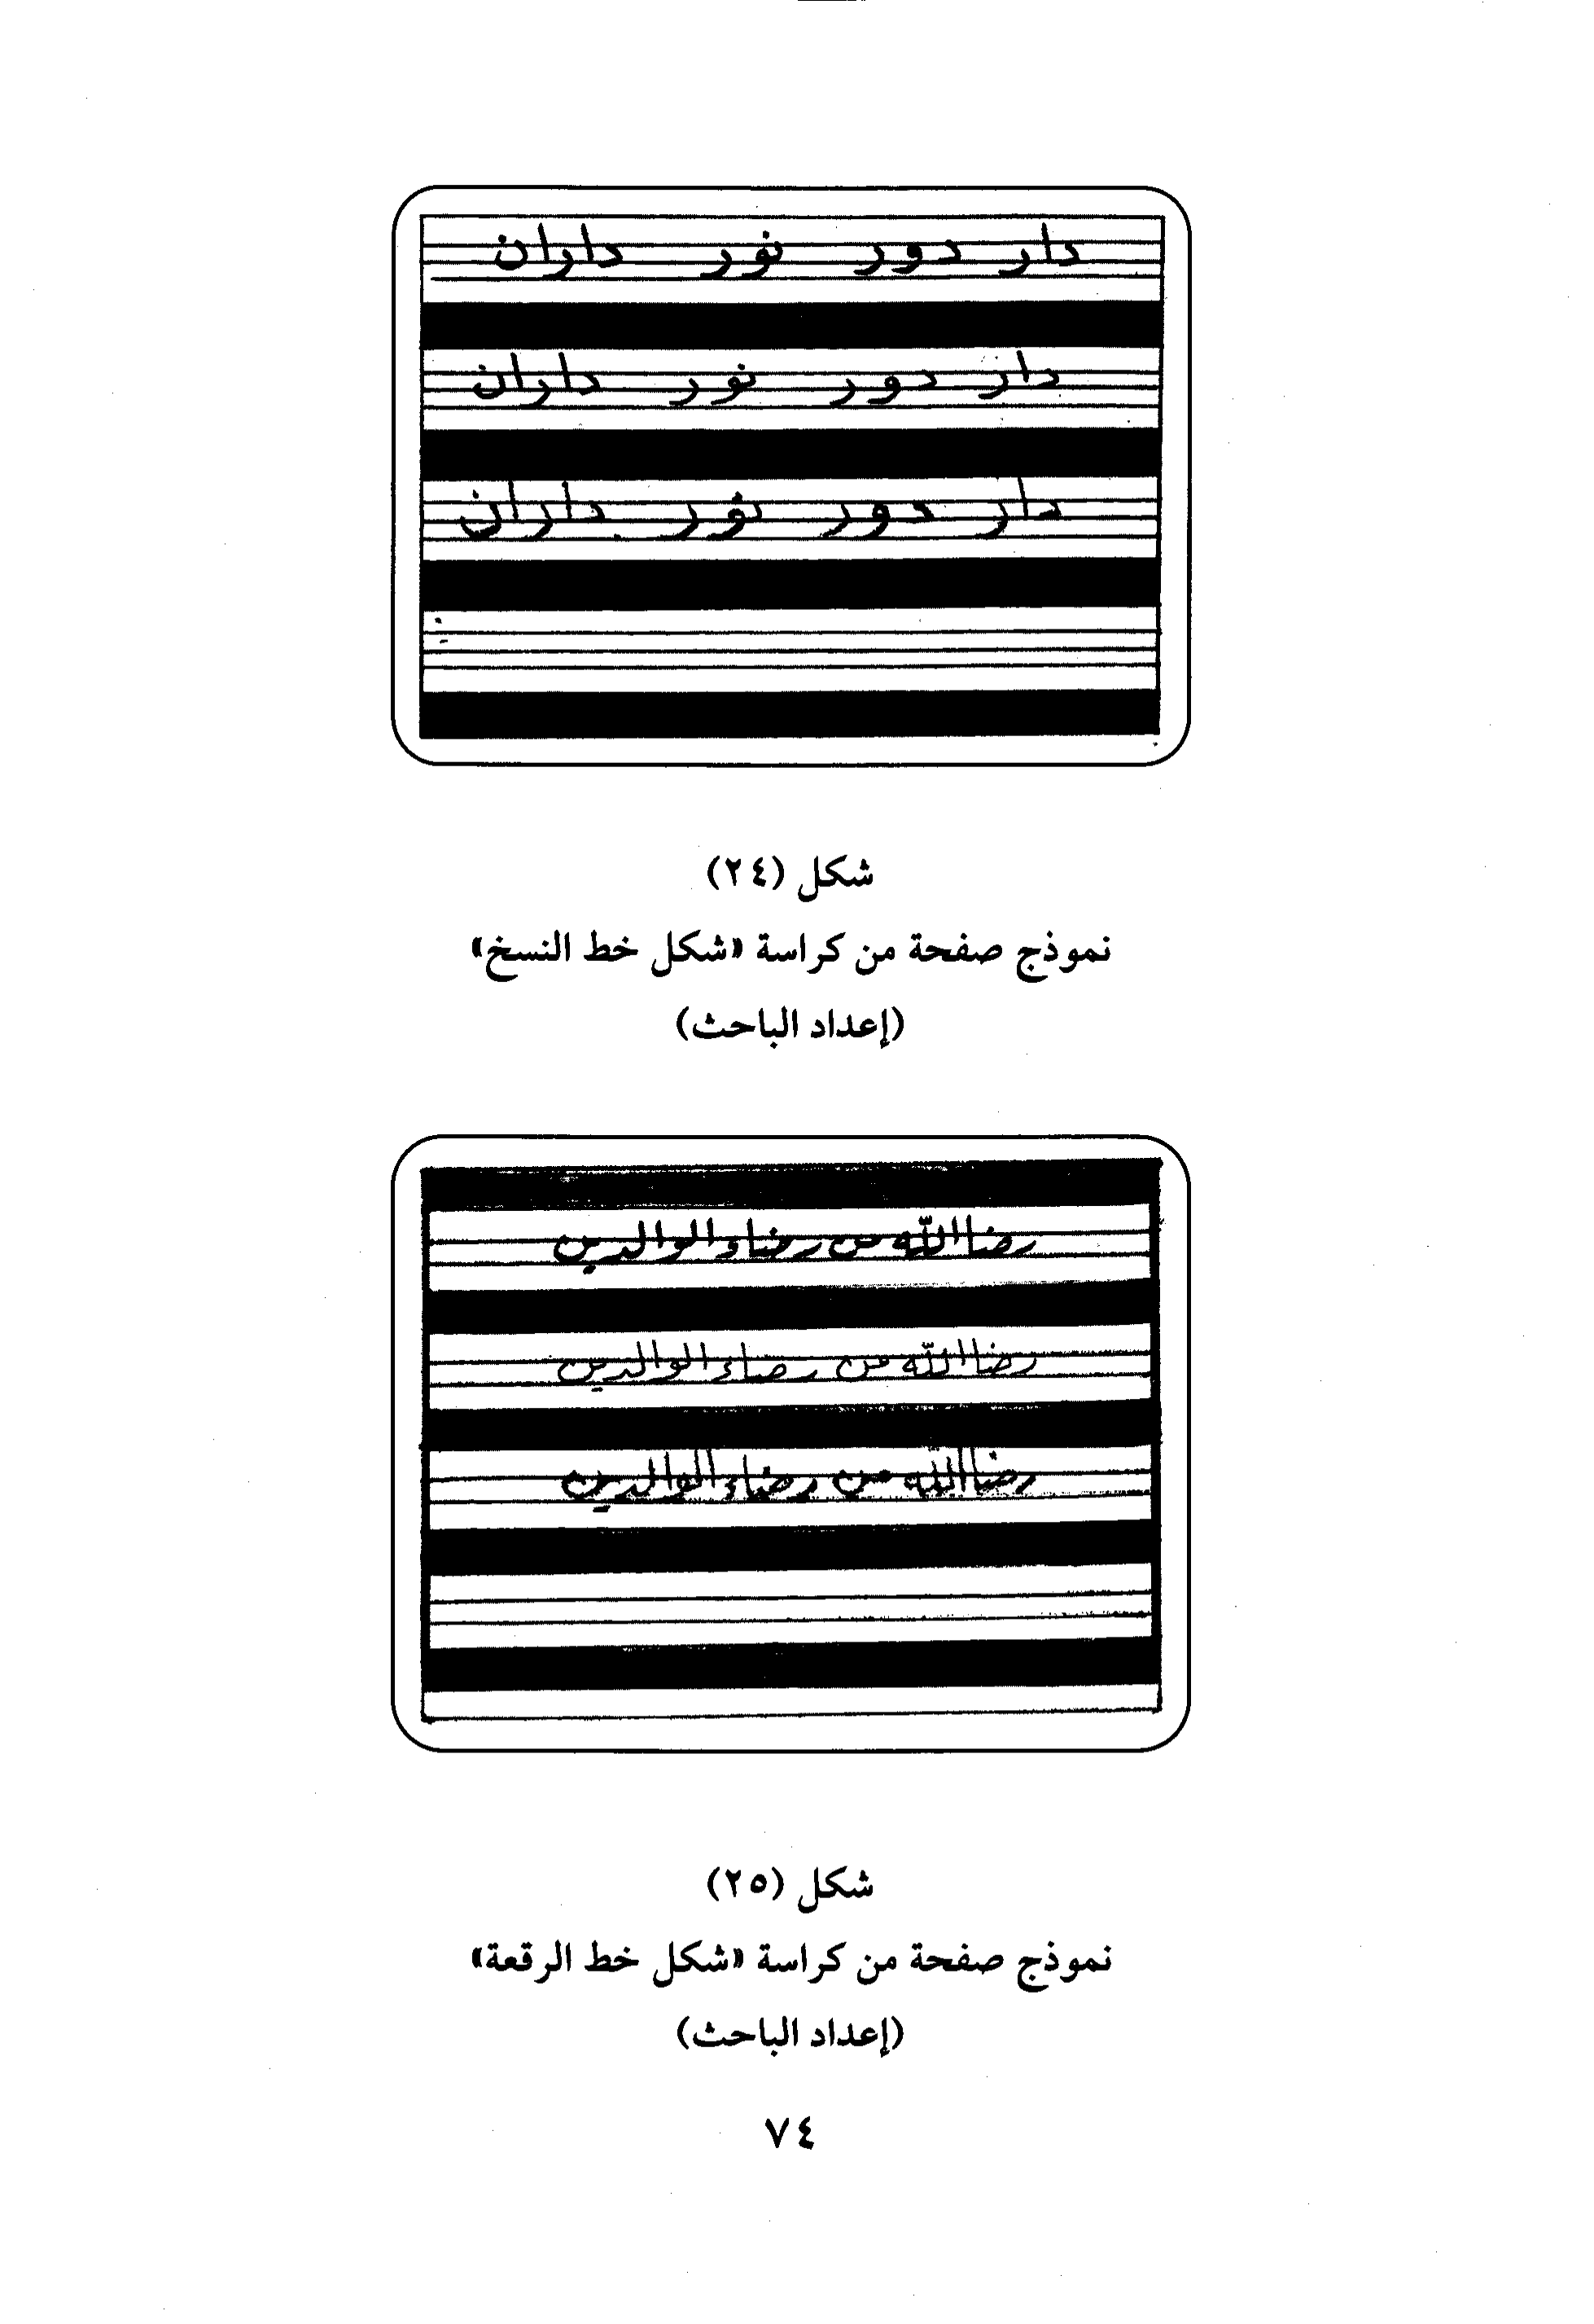 دار دور نور داران
دار دور نور داران
دار دور نور داران
شكل (٢٤)
نموذج صفحة من كراسة «شكل خط النسخ»
(إعداد الباحث)
رضا الله من رضاء الوالدين
رضا الله من رضاء الوالدين
رضا الله من رضاء الوالدين
شكل (٢٥)
نموذج صفحة من كراسة «شكل خط الرقعة»
(إعداد الباحث)
٧٤